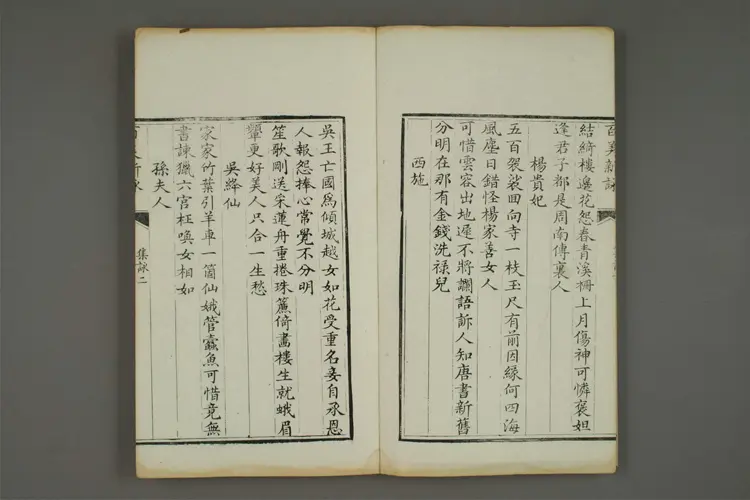 百美新詠
集詠二
結綺樓邊花怨春青溪柵上月傷神可憐褒妲
逢君子都是周南傳裏人
楊貴妃
五百袈裟回向寺一枝玉尺有前因緣何四海
風塵日錯怪楊家善女人
可惜雲容出地遲不將讕語訴人知唐書新舊
分明在那有金錢洗祿兒
西施
吳王亡國爲傾城越女如花受重名妾自承恩
人報怨捧心常覺不分明
笙歌剛送采蓮舟重捲珠簾倚畫樓生就蛾眉
顰更好美人只合一生愁
吳絳仙
家家竹葉引羊車一箇仙娥管蠹魚可惜竟無
書諫獵六宮枉喚女相如
孫夫人
百美新詠
集詠二